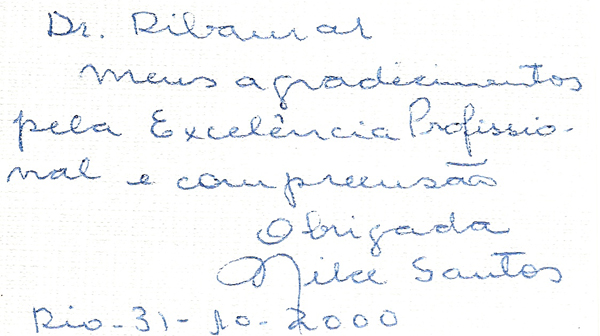 Dr. Ribamar
Meus agradecimentos
pela Excelência Profissio-
nal e compreensão
Obrigada
Nilce Santos
Rio-31-10-2000